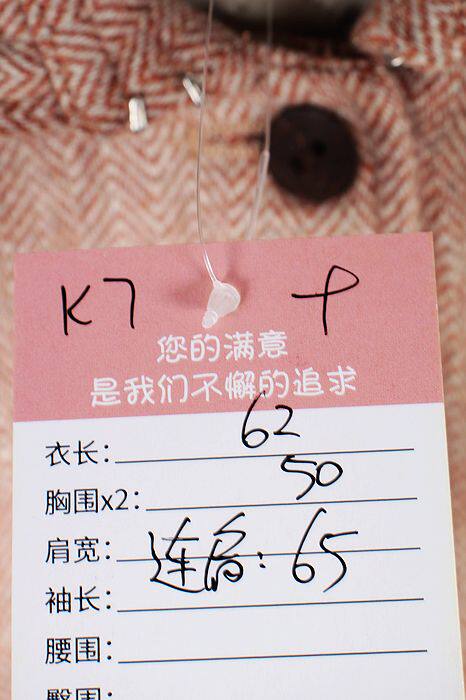 K7
您的满意
是我们不懈的追求
衣长：62
胸围x2：50
肩宽：
连肩：65
袖长：
腰围：
臀围：